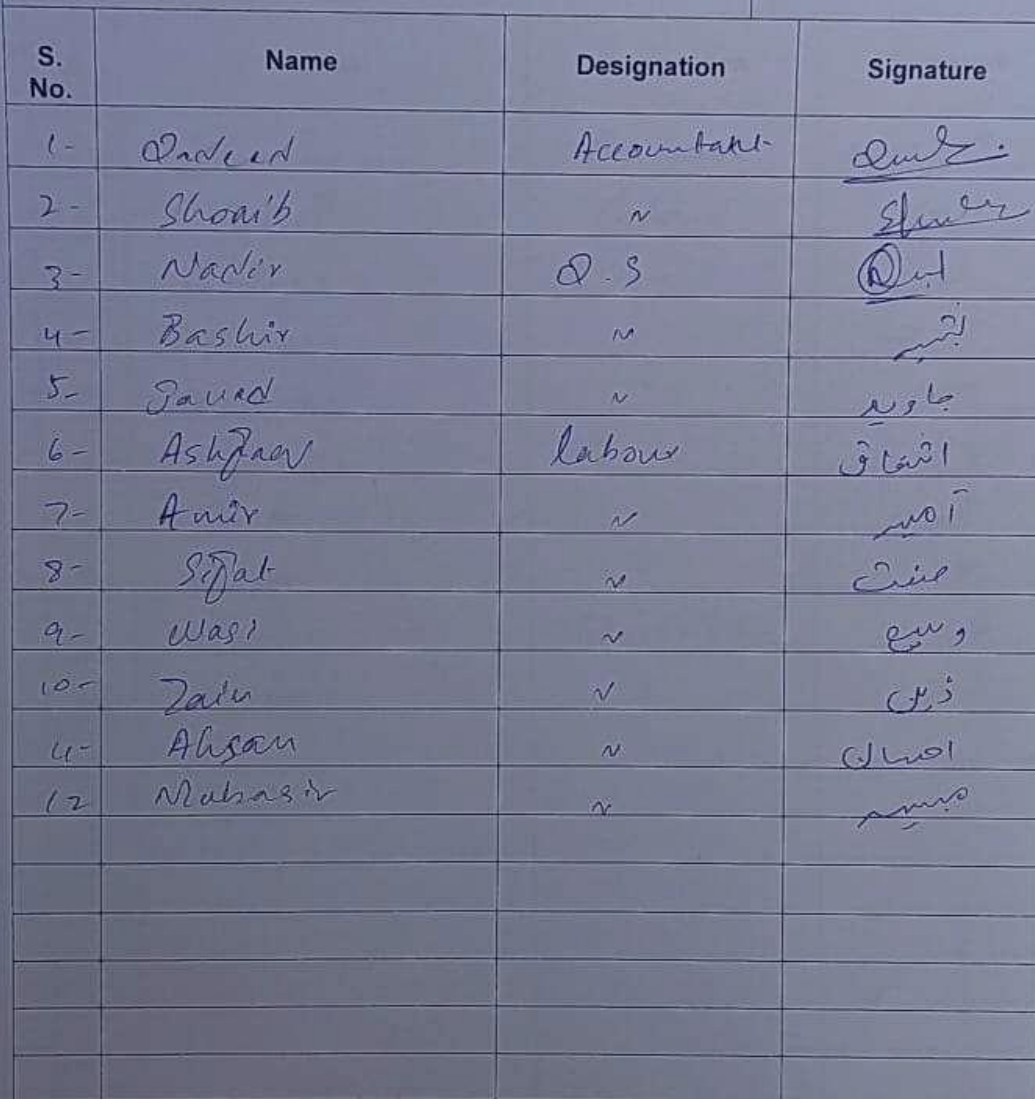 S. No. Name Designation Signature
1- Qadeed Accountant
2- Shoaib ~
3- Nadir Q.S
4- Bashir ~ بشیر
5- Javed ~ جاوید
6- Ashfaq labour اشفاق
7- Amir ~ آمیر
8- Sifat ~ صفت
9- Wasi ~ وسیع
10- Zain ~ زین
11- Ahsan ~ احسان
12 Mubasir ~